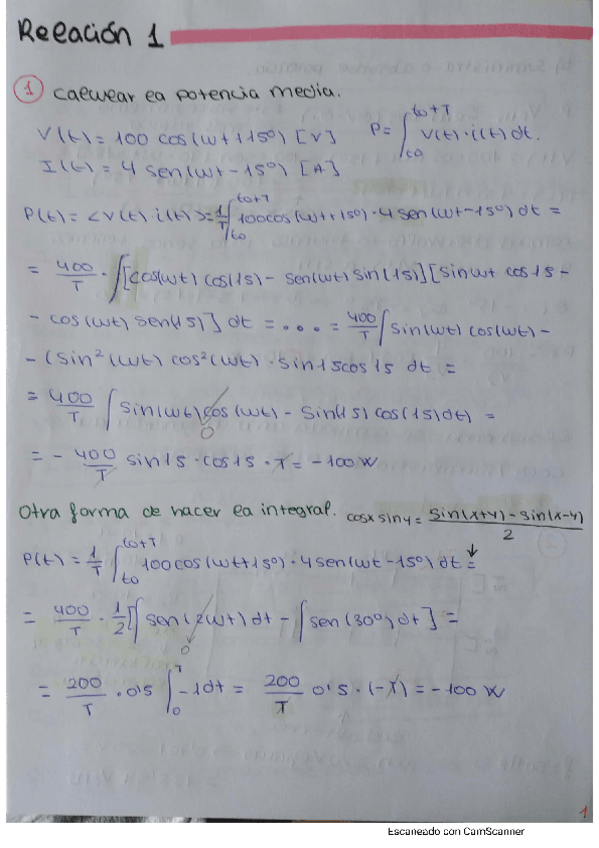 Relación 1
① Calcular la potencia media.
V(t) = 100 cos(wt+15º) [V]   P = ∫_{to}^{to+T} V(t)·i(t) dt.
I(t) = 4 sen(wt-15º) [A]
P(t) = <V(t)·i(t)> = 1/T ∫_{to}^{to+T} 100cos(wt+15º)·4sen(wt-15º) dt =
= 400/T · ∫[cos(wt) cos(15) - sen(wt) sin(15)] [sinwt cos15 -
- cos(wt) sen(15)] dt = ... = 400/T ∫ sin(wt) cos(wt) -
- (sin²(wt) cos²(wt) · sin15cos15 dt =
= 400/T ∫ sin(wt) cos(wt) - sin(15) cos(15) dt) =
0
= - 400/T sin15 · cos15 · T = -100 W
Otra forma de hacer la integral. cosx siny = (sin(x+y) - sin(x-y))/2
P(t) = 1/T ∫_{to}^{to+T} 100cos(wt+15º)·4sen(wt-15º) dt =
↓
= 400/T · 1/2 [∫ sen(2wt) dt - ∫ sen(30º) dt] =
0
= 200/T · 0'5 ∫_0^T -1dt = 200/T 0'5 · (-T) = -100 W
1
Escaneado con CamScanner